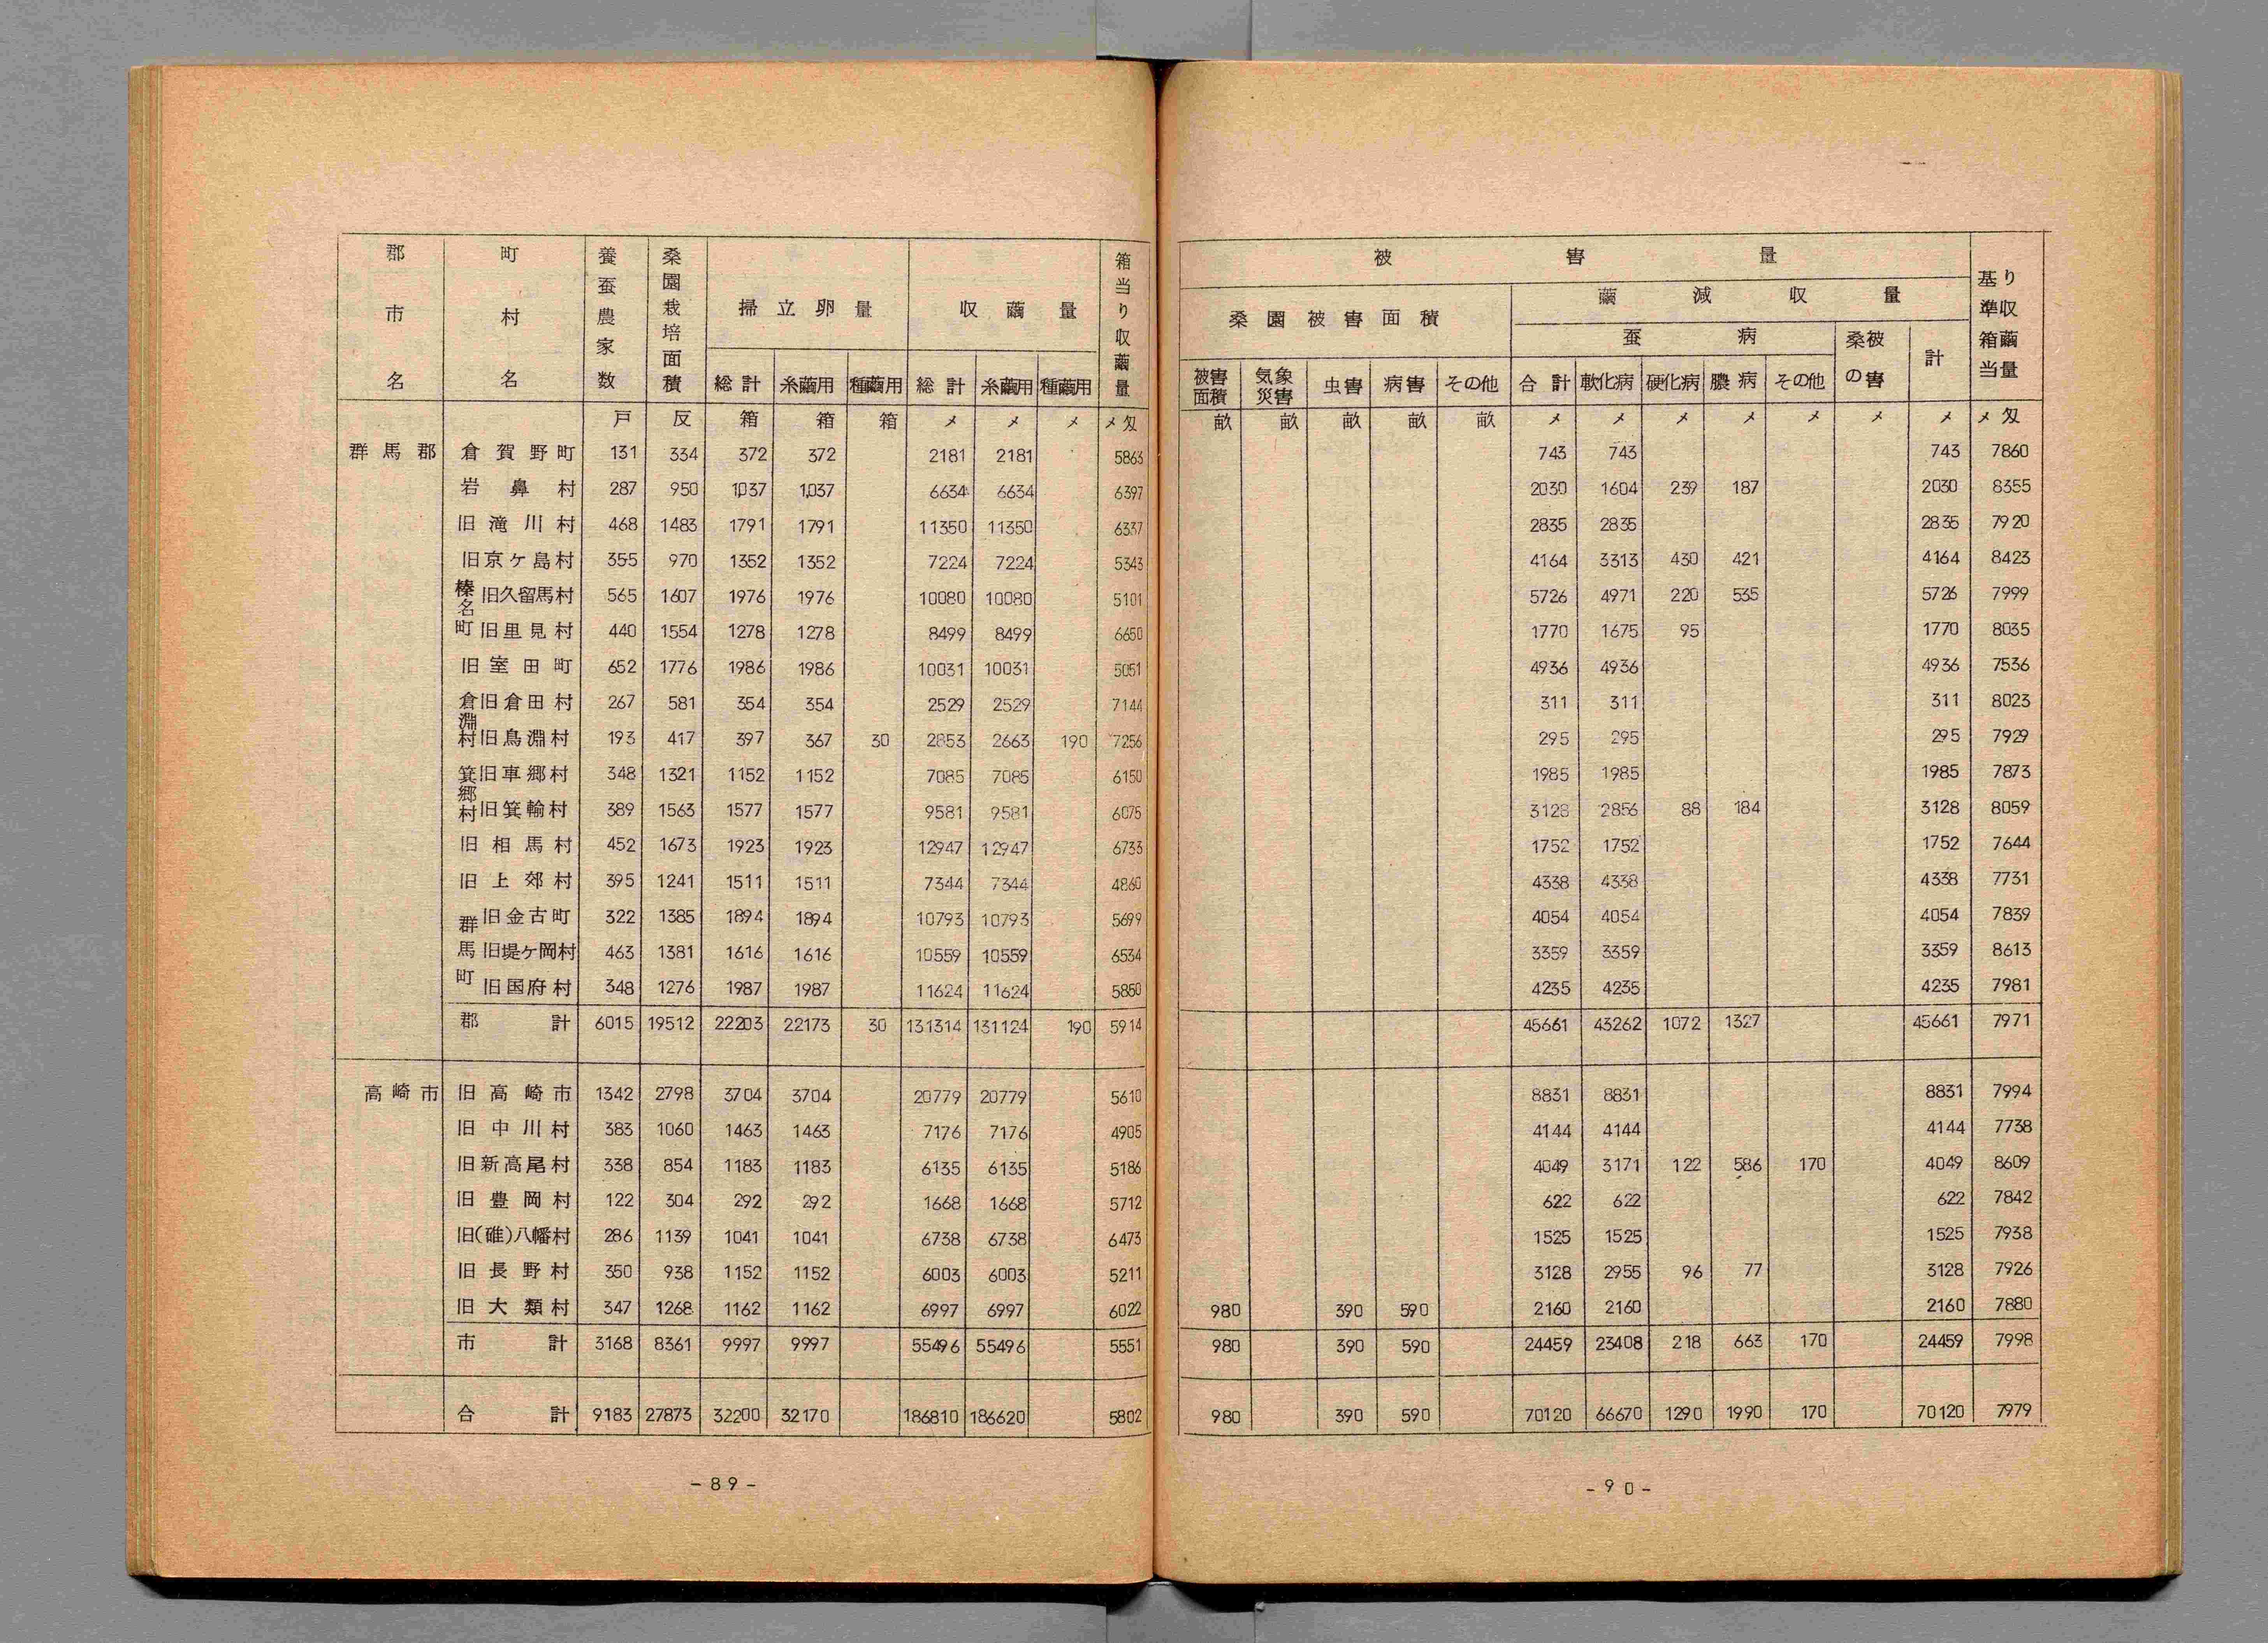 郡市名 町村名 養蚕農家数 桑園栽培面積 掃立卵量 収繭量 箱当り収繭量
総計 糸繭用 種繭用 総計 糸繭用 種繭用
戸 反 箱 箱 箱 メ メ メ メ匁
群馬郡 倉賀野町 131 334 372 372 2181 2181 5863
岩鼻村 287 950 1,037 1,037 6634 6634 6397
旧滝川村 468 1483 1791 1791 11350 11350 6337
旧京ケ島村 355 970 1352 1352 7224 7224 5343
榛名町 旧久留馬村 565 1607 1976 1976 10080 10080 5101
旧里見村 440 1554 1278 1278 8499 8499 6650
旧室田町 652 1776 1986 1986 10031 10031 5051
倉淵村 旧倉田村 267 581 354 354 2529 2529 7144
旧烏淵村 193 417 397 367 30 2853 2663 190 7256
箕郷村 旧車郷村 348 1321 1152 1152 7085 7085 6150
旧箕輪村 389 1563 1577 1577 9581 9581 6075
旧相馬村 452 1673 1923 1923 12947 12947 6733
旧上郊村 395 1241 1511 1511 7344 7344 4860
群馬町 旧金古町 322 1385 1894 1894 10793 10793 5699
旧堤ケ岡村 463 1381 1616 1616 10559 10559 6534
旧国府村 348 1276 1987 1987 11624 11624 5850
郡計 6015 19512 22203 22173 30 131314 131124 190 5914
高崎市 旧高崎市 1342 2798 3704 3704 20779 20779 5610
旧中川村 383 1060 1463 1463 7176 7176 4905
旧新高尾村 338 854 1183 1183 6135 6135 5186
旧豊岡村 122 304 292 292 1668 1668 5712
旧(碓)八幡村 286 1139 1041 1041 6738 6738 6473
旧長野村 350 938 1152 1152 6003 6003 5211
旧大類村 347 1268 1162 1162 6997 6997 6022
市計 3168 8361 9997 9997 55496 55496 5551
合計 9183 27873 32200 32170 186810 186620 5802
-89-
被害量 基準箱当り収繭量
桑園被害面積 繭減収量
蚕病 桑の被害 計
被害面積 気象災害 虫害 病害 その他 合計 軟化病 硬化病 膿病 その他
畝 畝 畝 畝 畝 メ メ メ メ メ メ メ メ匁
743 743 743 7860
2030 1604 239 187 2030 8355
2835 2835 2835 7920
4164 3313 430 421 4164 8423
5726 4971 220 535 5726 7999
1770 1675 95 1770 8035
4936 4936 4936 7536
311 311 311 8023
295 295 295 7929
1985 1985 1985 7873
3128 2856 88 184 3128 8059
1752 1752 1752 7644
4338 4338 4338 7731
4054 4054 4054 7839
3359 3359 3359 8613
4235 4235 4235 7981
45661 43262 1072 1327 45661 7971
8831 8831 8831 7994
4144 4144 4144 7738
4049 3171 122 586 170 4049 8609
622 622 622 7842
1525 1525 1525 7938
3128 2955 96 77 3128 7926
980 390 590 2160 2160 2160 7880
980 390 590 24459 23408 218 663 170 24459 7998
980 390 590 70120 66670 1290 1990 170 70120 7979
-90-